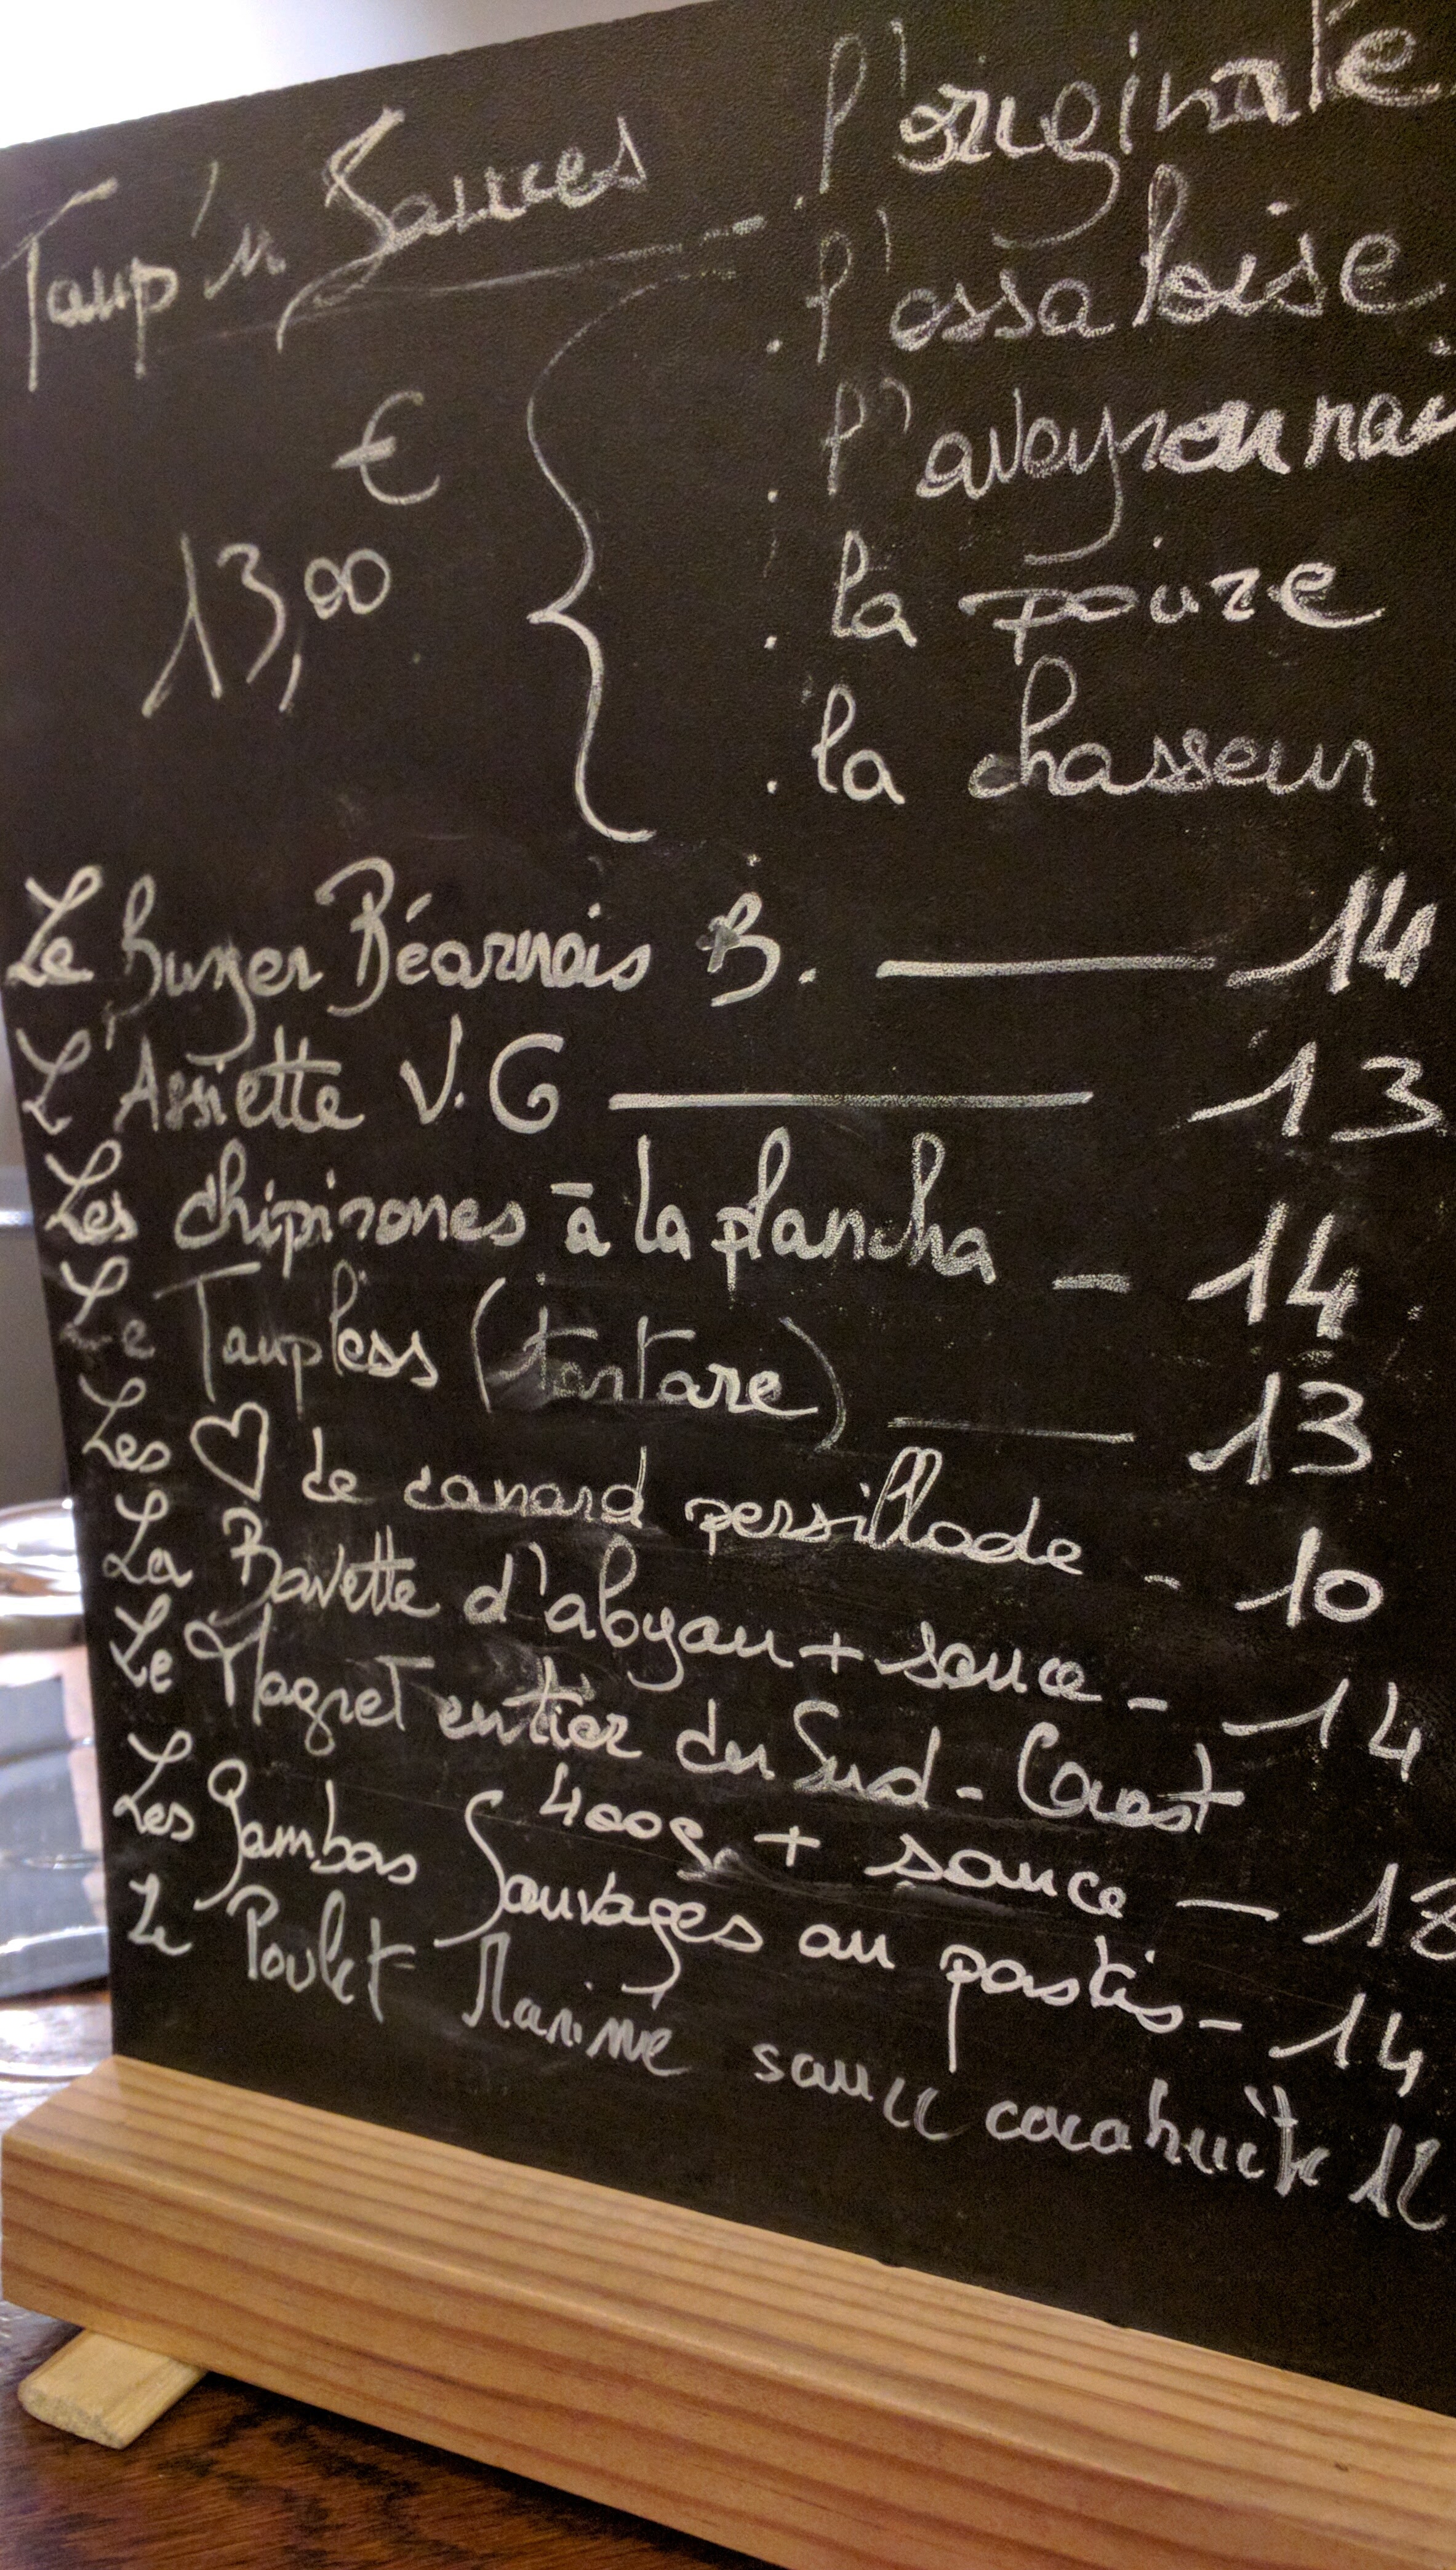 Taup'n Sauces
. l'originale
. l'ossaloise
. l'aveyronnai
. la poivre
. la chasseur
€
13,00
Le Burger Béarnais B. — 14
L'Assiette V.G — 13
Les chipirones à la plancha - 14
Le Taupless (tartare) — 13
Les ♡ de canard persillade - 10
La Bavette d'aloyau + sauce - 14
Le Magret entier du Sud-Ouest
400g + sauce — 18
Les Gambas Sauvages au pastis - 14
Le Poulet Mariné sauce cacahuète 12